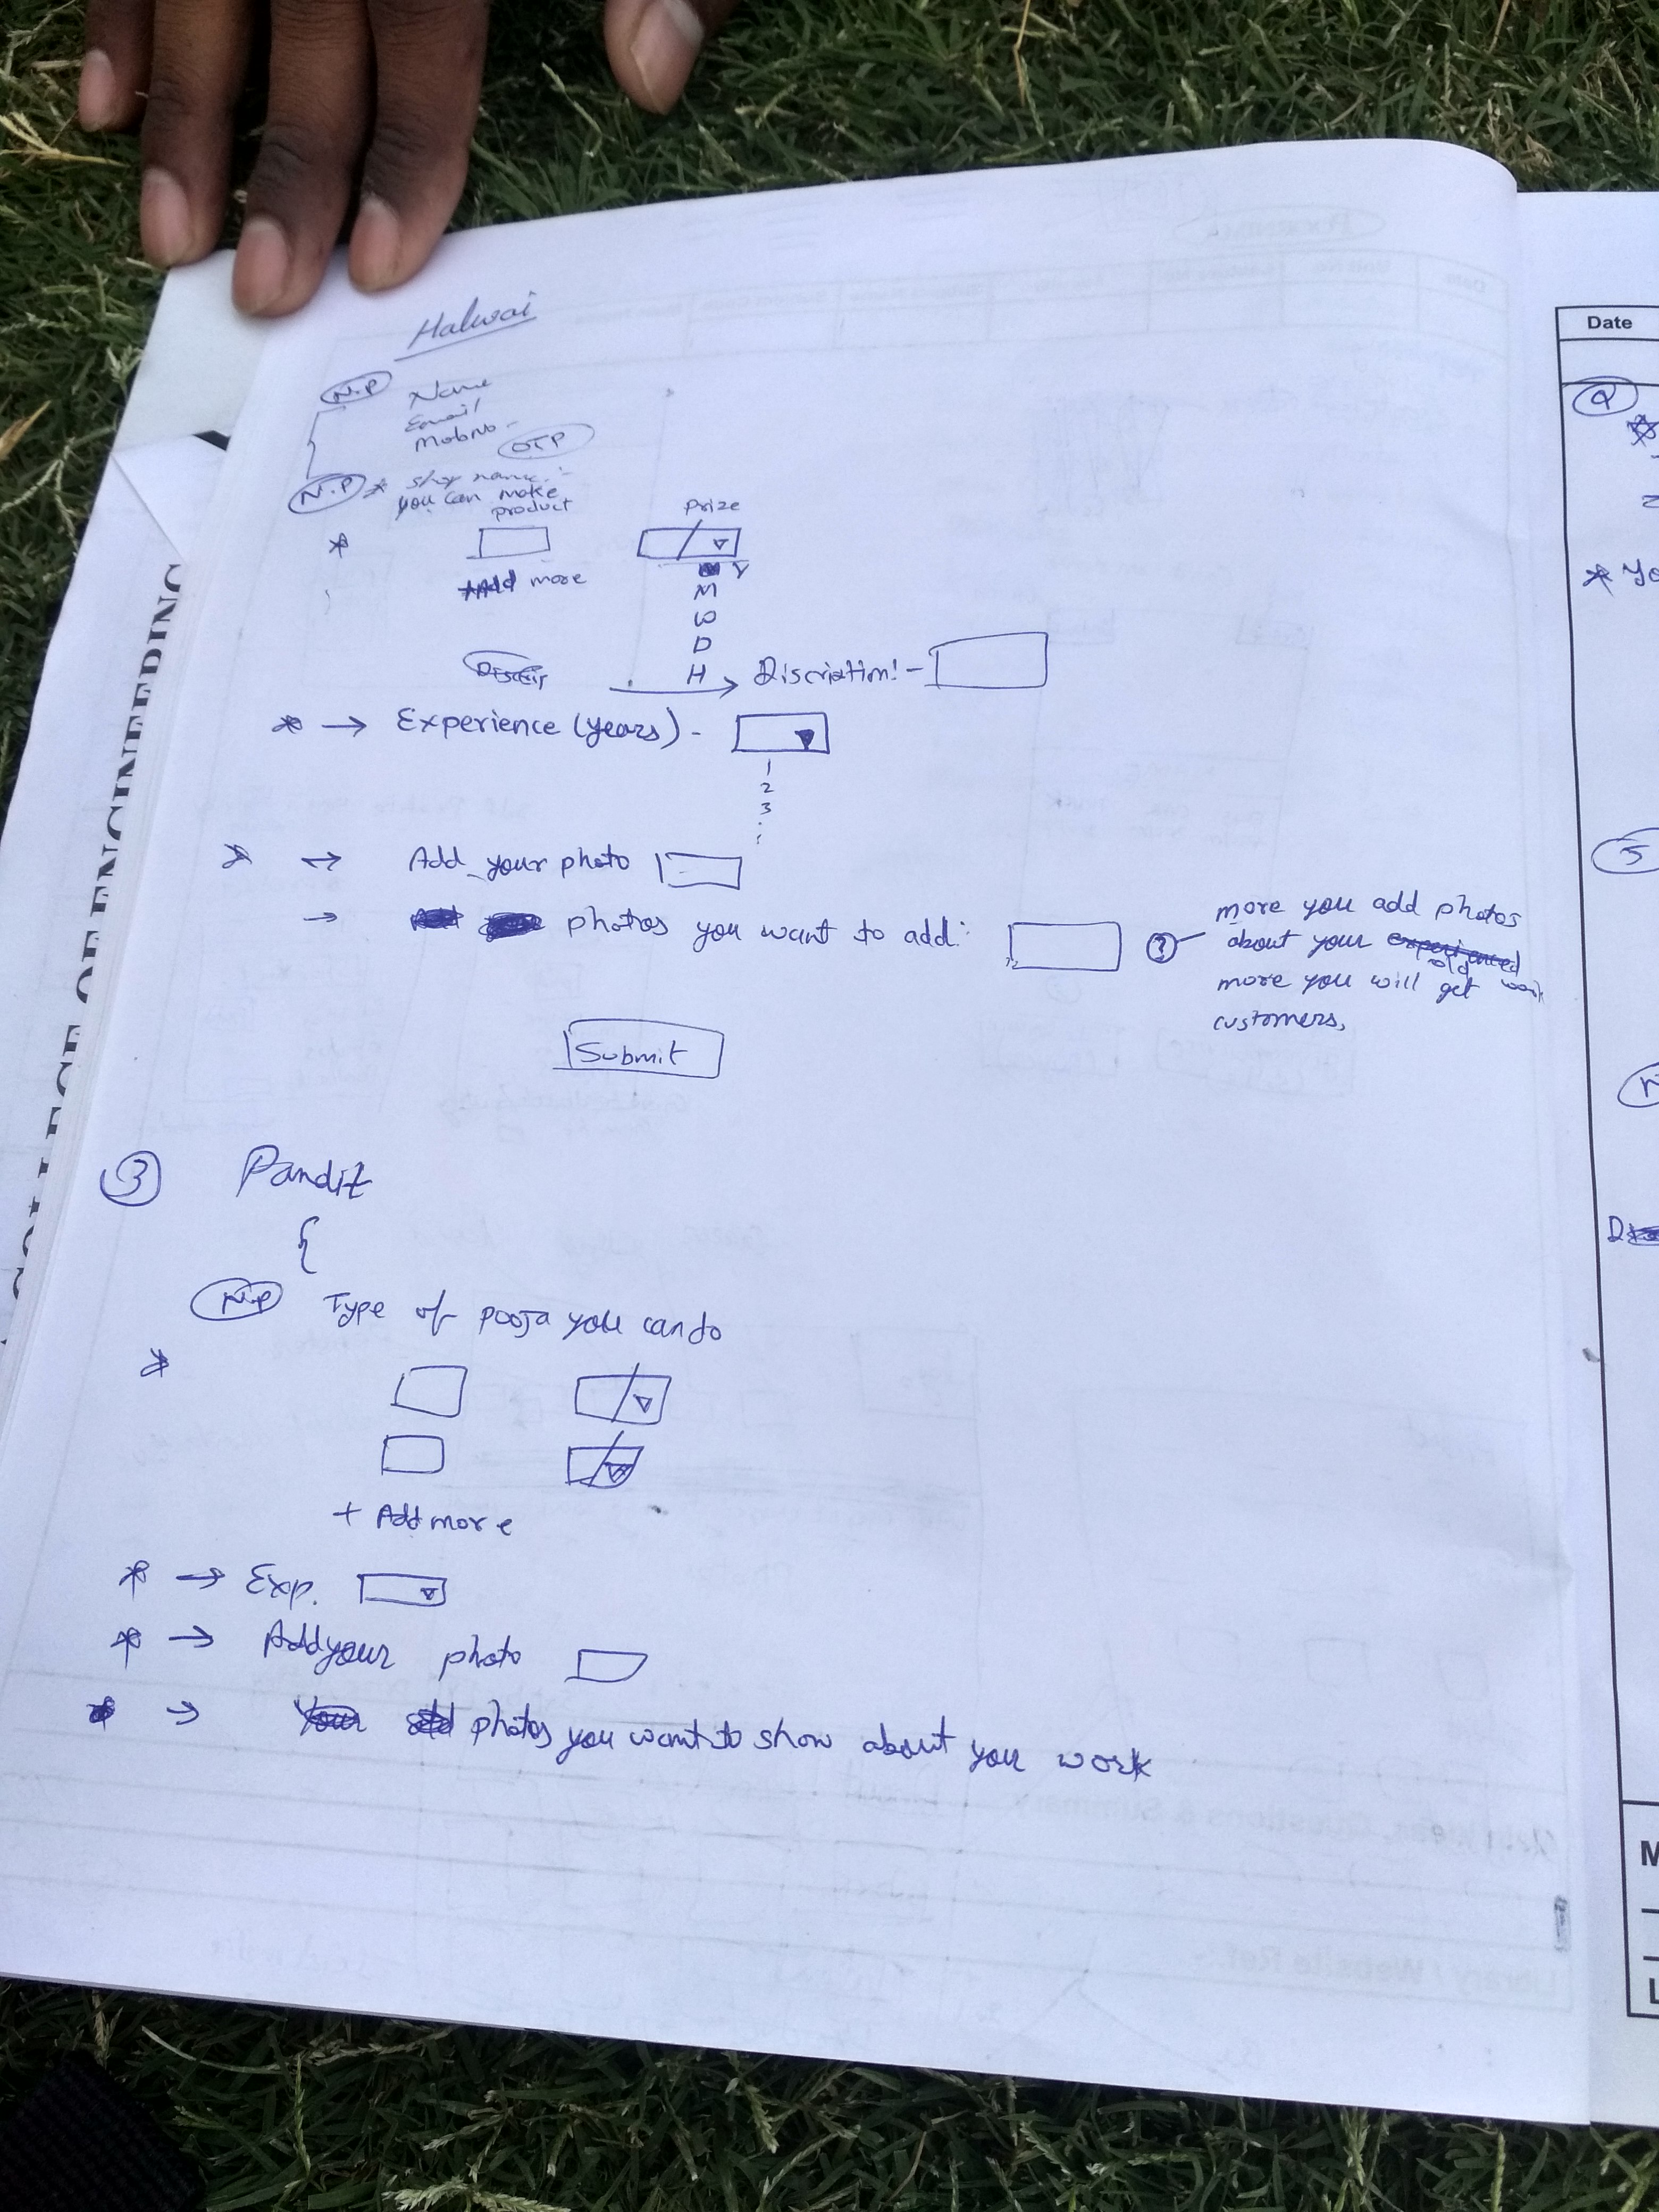 Halwai
N.P Name
Email
Mobno -
OTP
N.P * shop name :-
you can make
product
prize
*
+Add more
Y
M
W
D
H
Discriation! -
* → Experience (years) -
1
2
3
* → Add your photo
→ photos you want to add:
? more you add photos
about your old work
more you will get
customers,
Submit
3 Pandit
{
N.P Type of pooja you can do
*
+ Add more
* → Exp.
* → Add your photo
* → photos you want to show about you work
COLLEGE OF ENGINEERING
Date
Q
* Yo
5
N
D
M
L